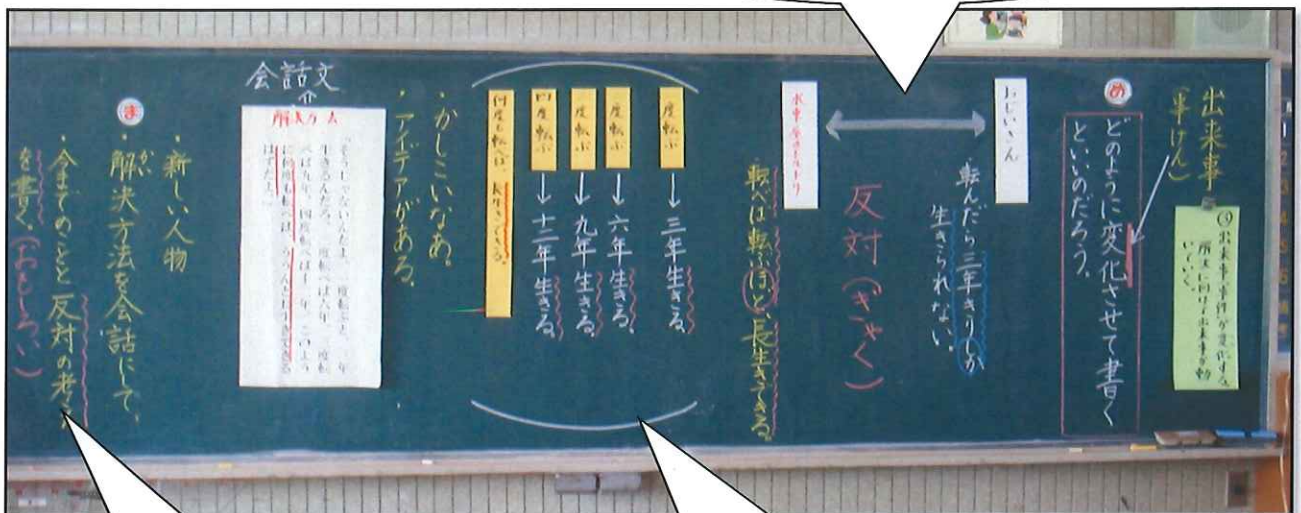 出来事
(事けん)
㋱
どのように変化させて書く
といいのだろう。
おじいさん
・転んだら三年きりしか
生きられない。
反対(ぎゃく)
水車屋のトルトリ
転べば転ぶほど長生きできる。
度転ぶ→三年生きる。
度転ぶ→六年生きる。
度転ぶ→九年生きる。
四度転ぶ→十二年生きる。
何度も転べば、長生きできる。
・かしこいなあ。
・アイデアがある。
会話文
⇧
解決方法
「そうじゃないんだよ。一度転ぶと、三年
生きるんだろ。二度転べば六年、三度転
べば九年、四度転べば十二年。このよう
に何度も転べば、ううんと長生きできる
はずだよ。」
㋮
・新しい人物
・解決方法を会話にして、
・今までのことと反対の考え
を書く。(おもしろい)